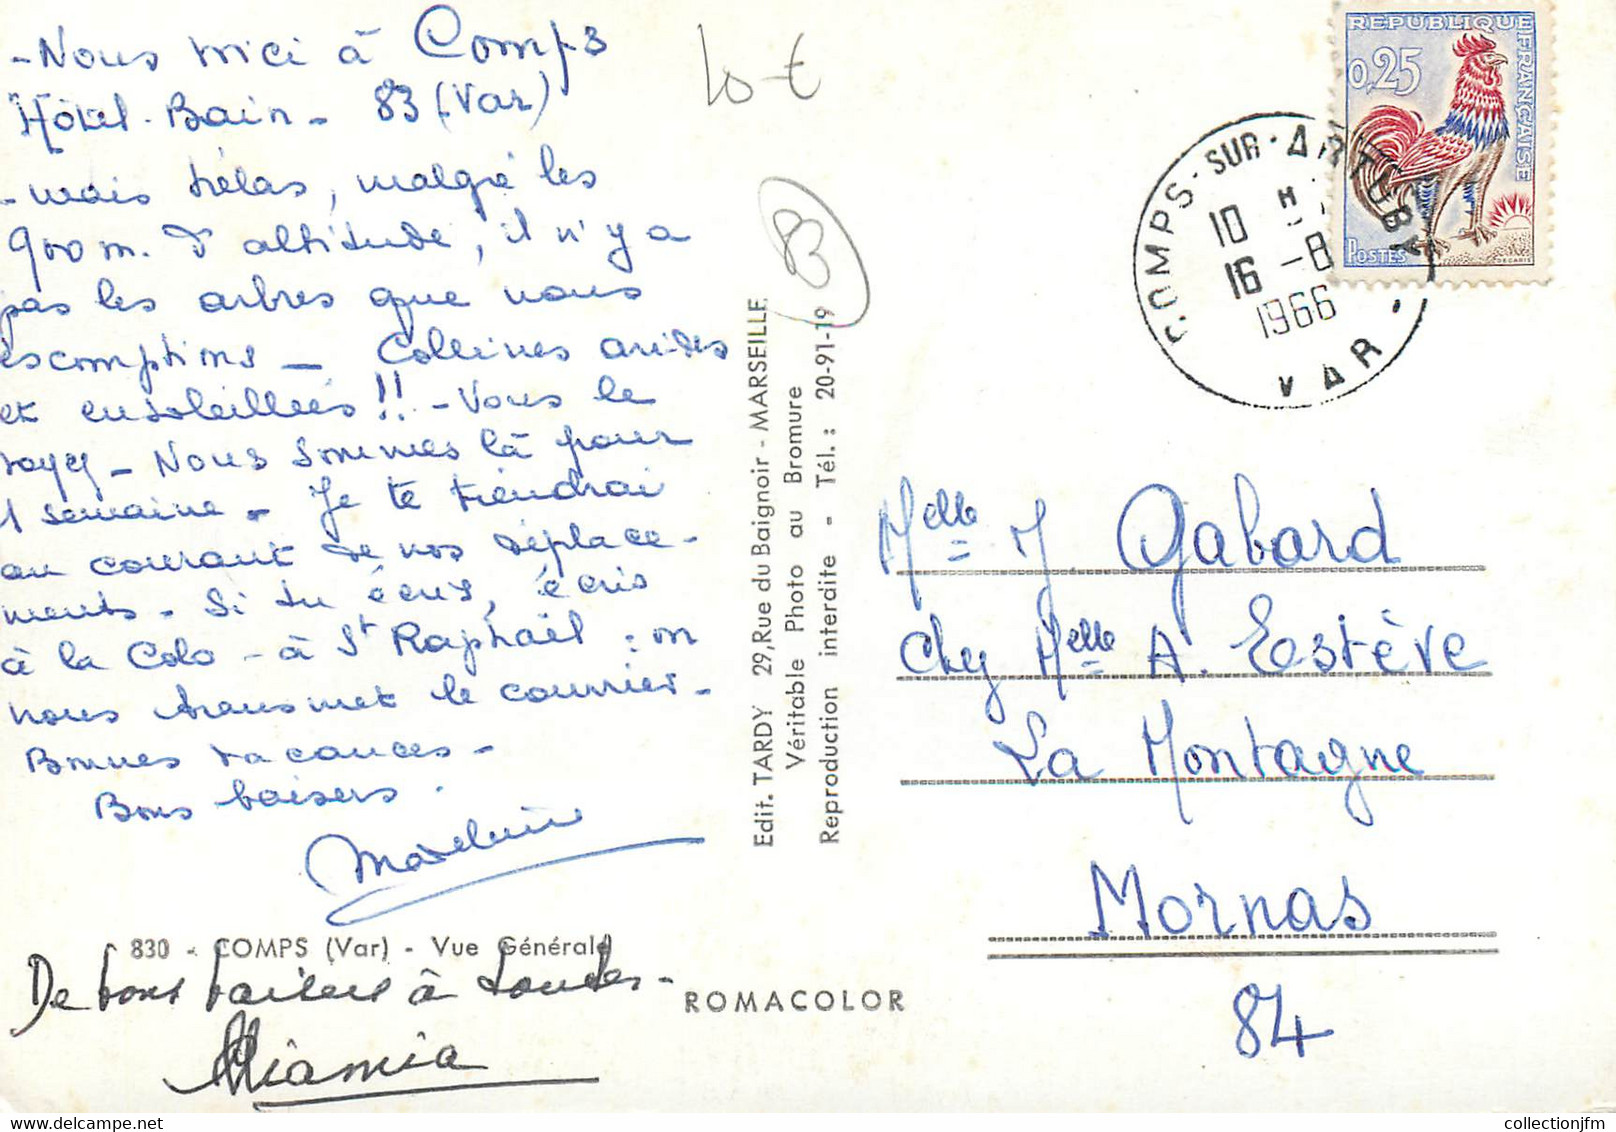 - Nous voici à Comps
Hôtel - Bain - 83 (Var)
- mais hélas, malgré les
900 m. d'altitude, il n'y a
pas les arbres que nous
escomptions - Collines arides
et ensoleillées !! - Vous le
voyez - Nous sommes là pour
1 semaine - Je te tiendrai
au courant de nos déplace-
ments - Si tu écris, écris
à la Colo - à St Raphaël : on
nous transmet le courrier -
Bonnes vacances -
Bons baisers .
830 - COMPS (Var) - Vue Générale
De bons baisers à toutes -
10 €
83
Edit. TARDY 29, Rue du Baignoir - MARSEILLE
Véritable Photo au Bromure
Reproduction interdite - Tél. : 20-91-19
ROMACOLOR
REPUBLIQUE FRANÇAISE
0,25
POSTES
DECARIS
COMPS-SUR-ARTUBY
10 H
16 - 8
1966
VAR
Melle J Gabard
Chez Melle A. Estève
La Montagne
Mornas
84
www.collectionjfm.fr